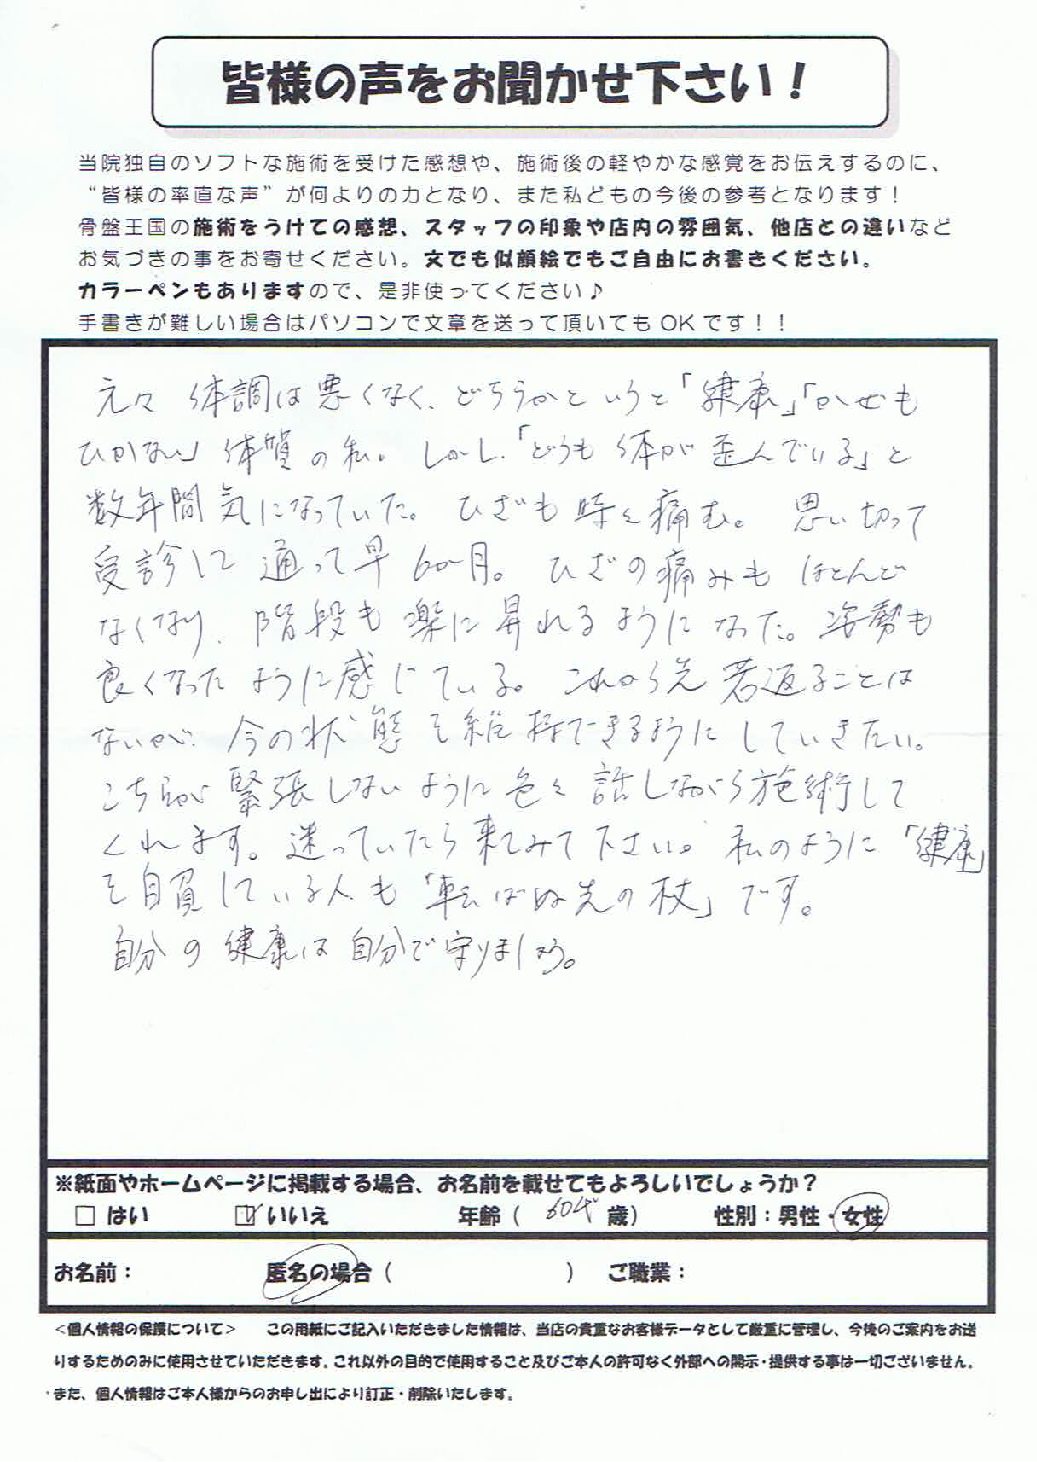 皆様の声をお聞かせ下さい！
当院独自のソフトな施術を受けた感想や、施術後の軽やかな感覚をお伝えするのに、
“皆様の率直な声”が何よりの力となり、また私どもの今後の参考となります！
骨盤王国の施術をうけての感想、スタッフの印象や店内の雰囲気、他店との違いなど
お気づきの事をお寄せください。文でも似顔絵でもご自由にお書きください。
カラーペンもありますので、是非使ってください♪
手書きが難しい場合はパソコンで文章を送って頂いてもOKです！！
元々 体調は悪くなく、どちらかというと「健康」「かぜも
ひかない」体質の私。しかし、「どうも体が歪んでいる」と
数年間気になっていた。ひざも時々痛む。思い切って
受診して通って早6か月。ひざの痛みもほとんど
なくなり、階段も楽に昇れるようになった。姿勢も
良くなったように感じている。これから先若返ることは
ないが、今の状態を維持できるようにしていきたい。
こちらが緊張しないように色々話しながら施術して
くれます。迷っていたら来てみて下さい。私のように「健康」
を自負している人も「転ばぬ先の杖」です。
自分の健康は自分で守りましょう。
※紙面やホームページに掲載する場合、お名前を載せてもよろしいでしょうか？
□ はい ☑ いいえ 年齢（ 60代 歳） 性別：男性・女性
お名前： 匿名の場合（ ） ご職業：
＜個人情報の保護について＞ この用紙にご記入いただきました情報は、当店の貴重なお客様データとして厳重に管理し、今後のご案内をお送
りするためのみに使用させていただきます。これ以外の目的で使用すること及びご本人の許可なく外部への開示・提供する事は一切ございません。
また、個人情報はご本人様からのお申し出により訂正・削除いたします。